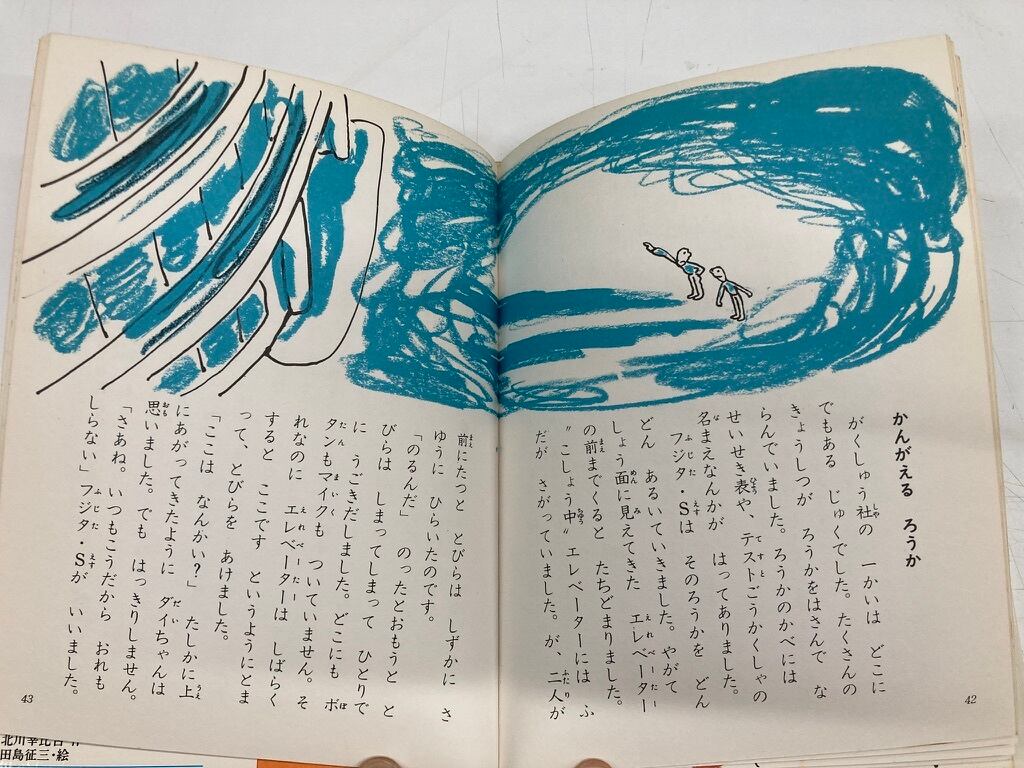 かんがえる　ろうか
がくしゅう社の　一かいは　どこに
でもある　じゅくでした。たくさんの
きょうしつが　ろうかをはさんで　な
らんでいました。ろうかのかべには
せいせき表や、テストごうかくしゃの
名まえなんかが　はってありました。
フジタ・Sは　そのろうかを　どん
どん　あるいていきました。やがて
しょう面に見えてきた　エレベーター
の前までくると　たちどまりました。
〝こしょう中〟エレベーターには　ふ
だが　さがっていました。が、二人が
42
前にたつと　とびらは　しずかに　さ
ゆうに　ひらいたのです。
「のるんだ」　のったとおもうと　と
びらは　しまってしまって　ひとりで
に　うごきだしました。どこにも　ボ
タンもマイクも　ついていません。そ
れなのに　エレベーターは　しばらく
すると　ここです　というようにとま
って、とびらを　あけました。
「ここは　なんかい？」　たしかに上
にあがってきたように　ダイちゃんは
思いました。でも　はっきりしません。
「さあね。いつもこうだから　おれも
しらない」フジタ・Sが　いいました。
43
田島征三・絵